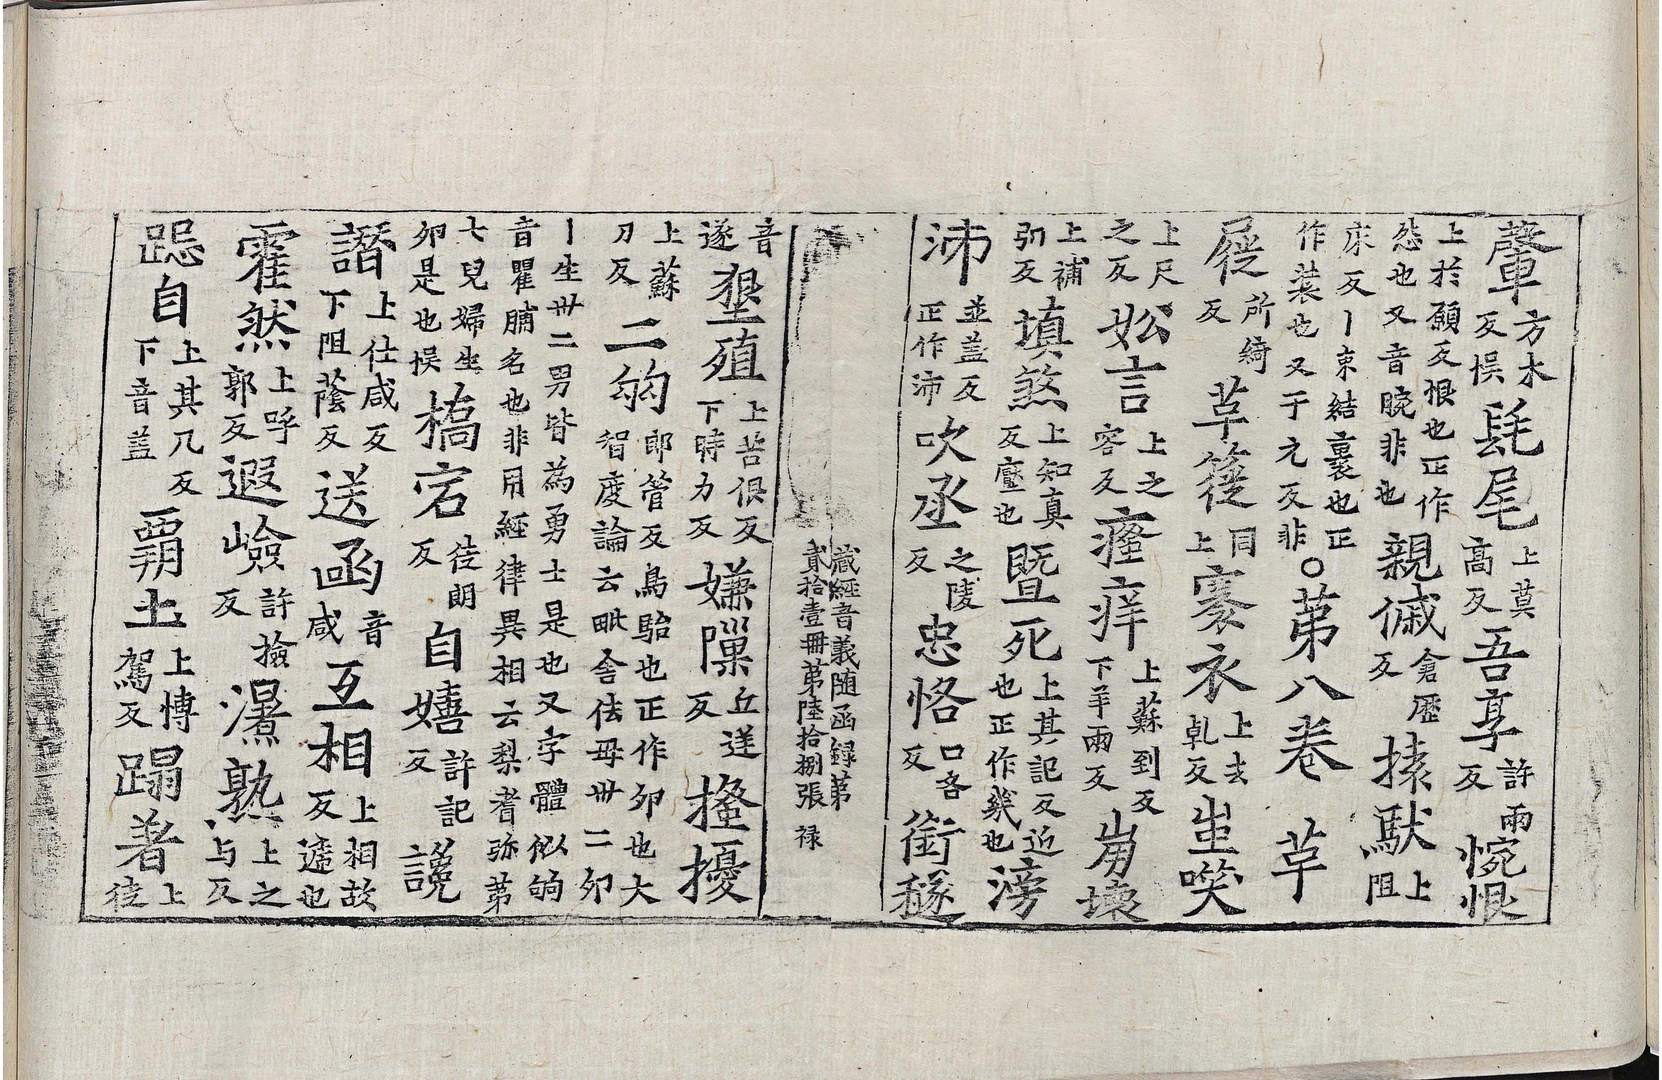 鼙方木反悮髦尾上莫高反吾享許兩反惋恨
上於願反恨也正作怨也又音腕非也親傶倉歷反㨿馱上阻
床反丨束結裹也正作裝也又于元反非○第八卷 草
屣所綺反草簁同上褰衣上去乹反生㗛
上尺之反妐言上之容反瘙痒上蘇到反下羊兩反崩壞
上補弘反填煞上知真反壓也曁死上其記反近也正作幾也滂
沛並盖反正作沛吹丞之陵反忠恪口各反銜穟
藏經音義随函録苐貳拾壹冊苐陸拾捌張 禄
音遂墾殖上苦佷反下時力反嫌隟丘逆反搔擾
上蘇刀反二㕿郎管反鳥䭾也正作卵也大智度論云毗舎佉母丗二卵
丨生丗二男皆為勇士是也又字體似䏏音瞿脯名也非用經律異相云梨耆弥苐
七兒婦生卵是也悮槁宕徒朗反自嬉許記反讒
譖上仕咸反下阻蔭反送函音咸互相上相故反遞也
霍然上呼郭反遐嶮許撿反㵱熟上之与反
跽自上其几反下音盖覇土上博駕反蹋著上徒